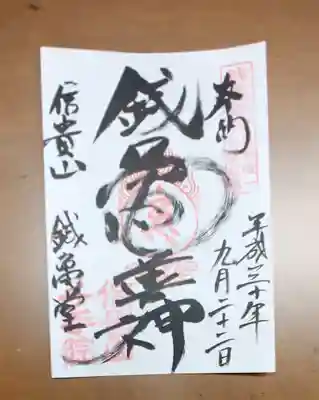 奉拝
平成三十年
九月二十二日
銭亀善神
信貴山
銭亀堂